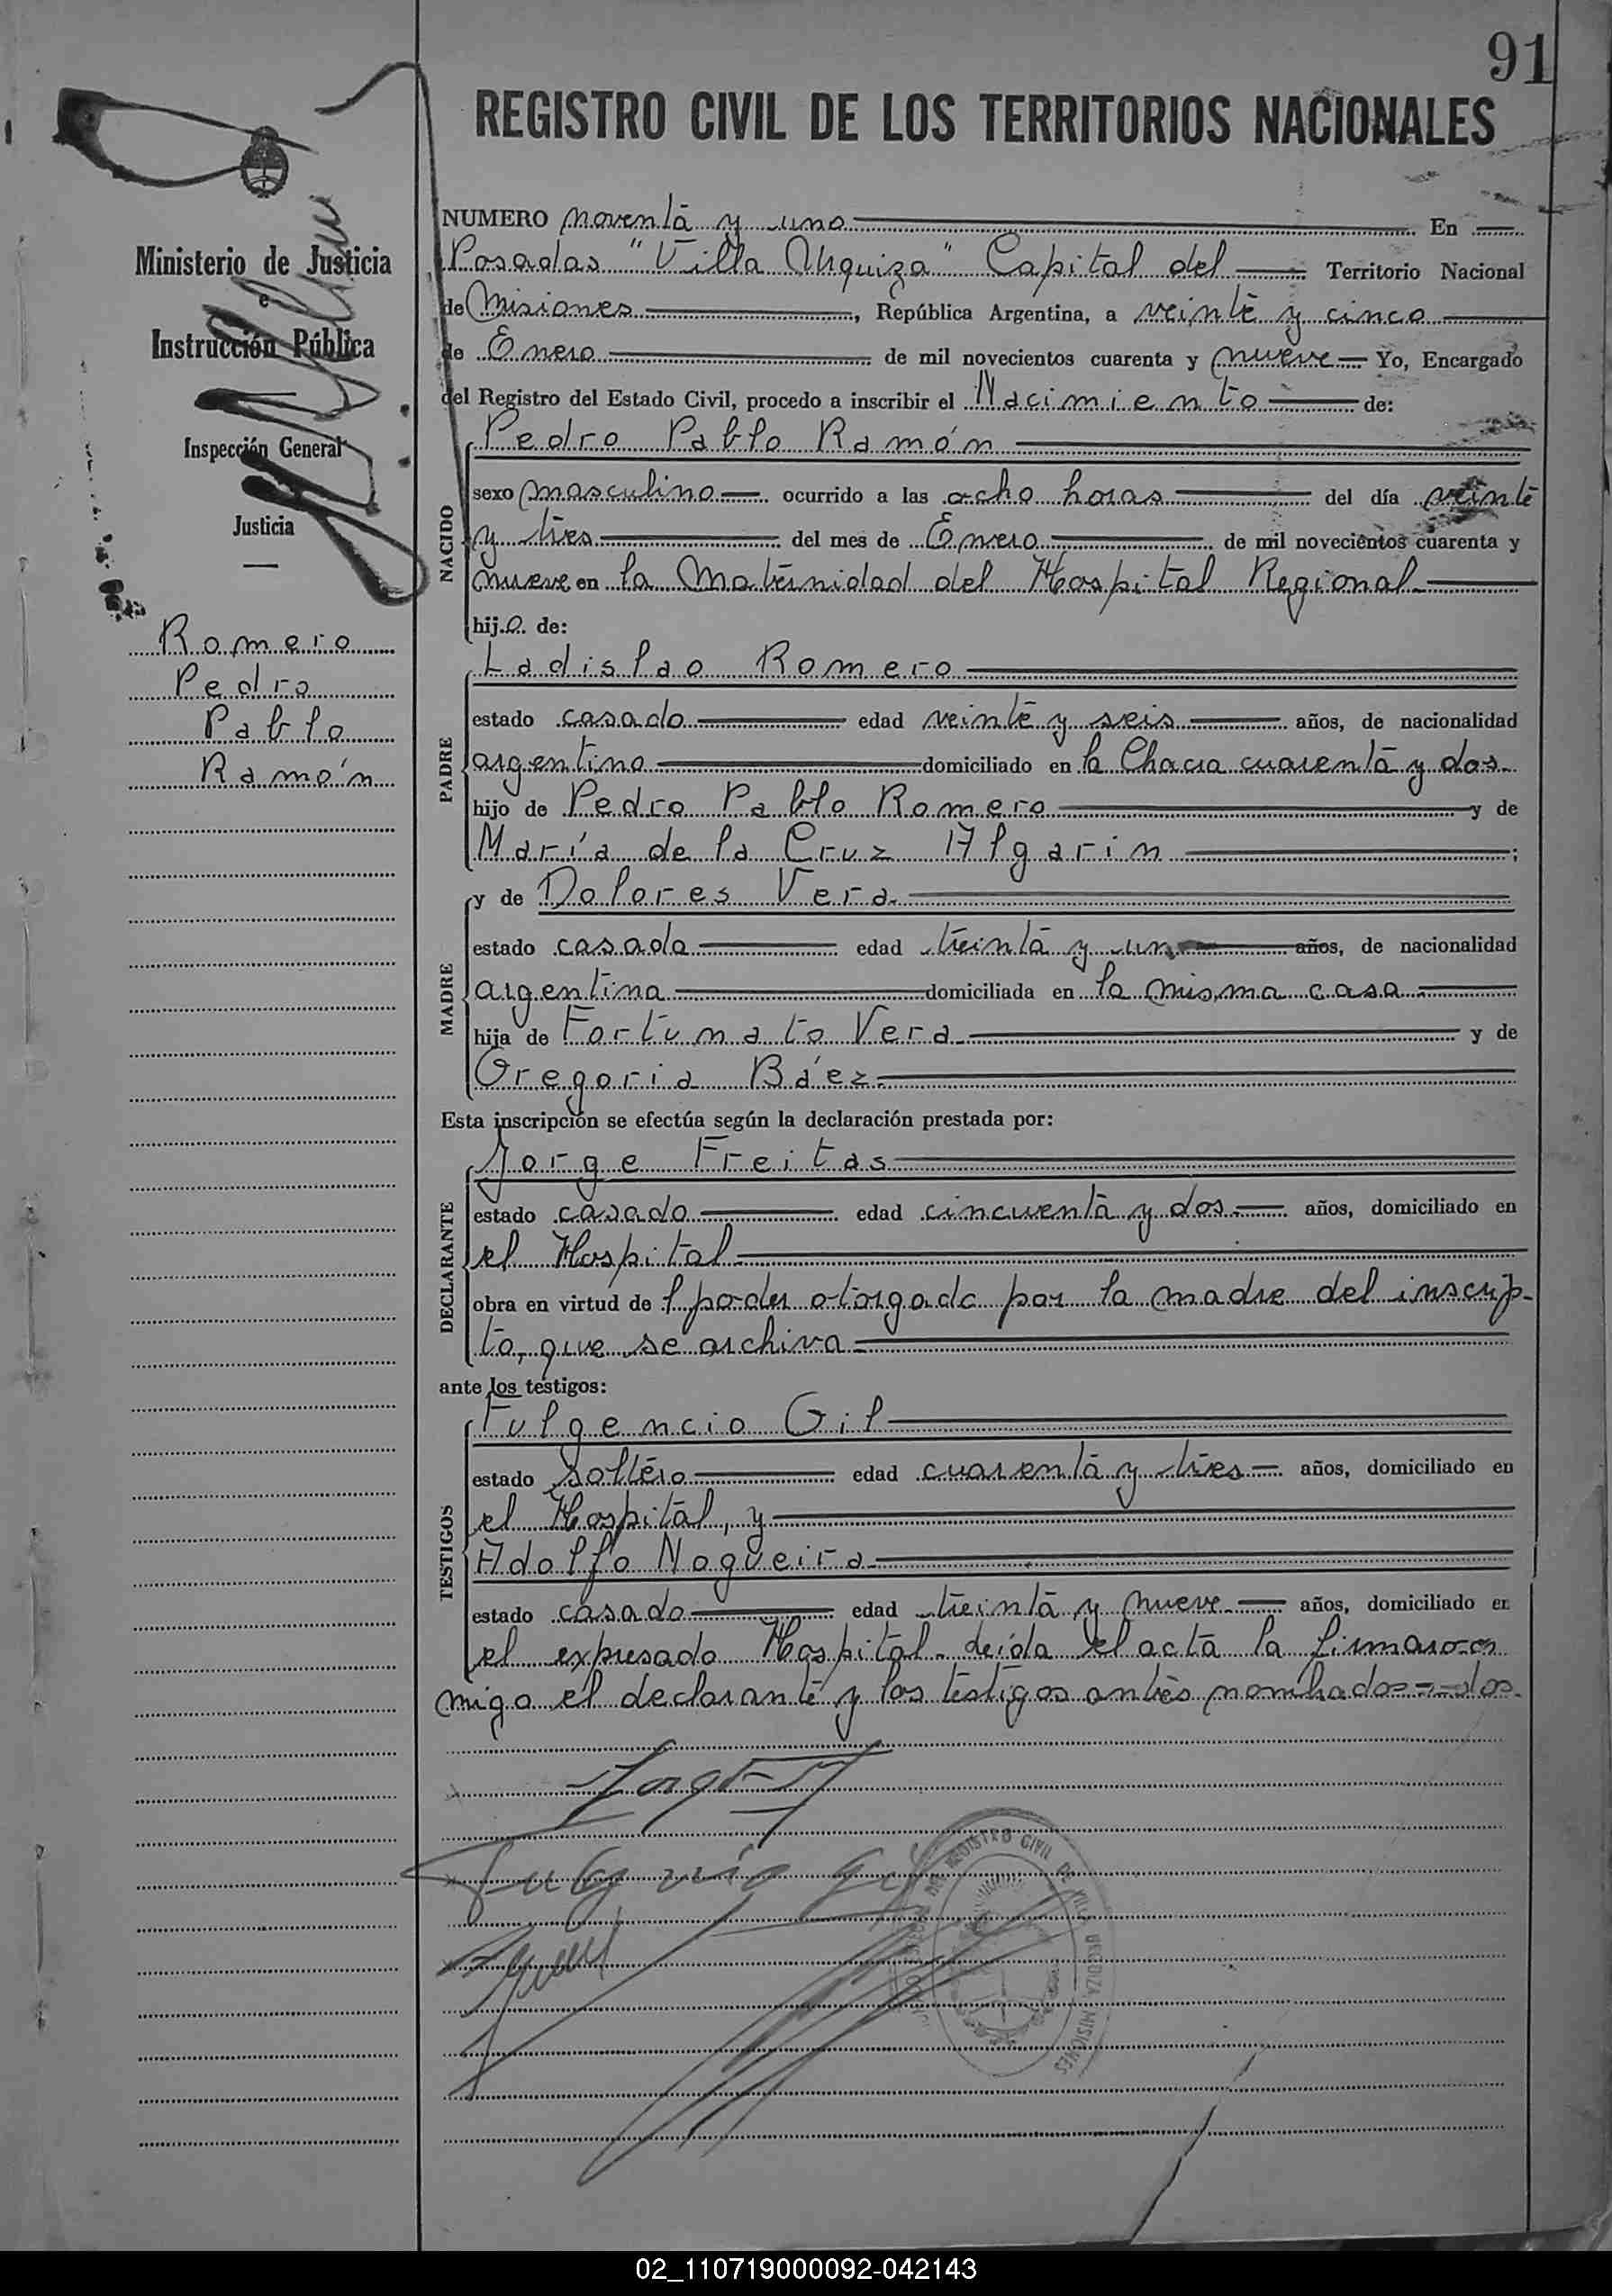 91
REGISTRO CIVIL DE LOS TERRITORIOS NACIONALES
Ministerio de Justicia
e
Instrucción Pública
Inspección General
Justicia
Romero
Pedro
Pablo
Ramón
NUMERO noventa y uno En
Posadas "Villa Urquiza" Capital del Territorio Nacional
de Misiones, República Argentina, a veinte y cinco
de Enero de mil novecientos cuarenta y nueve Yo, Encargado
del Registro del Estado Civil, procedo a inscribir el Nacimiento de:
NACIDO
Pedro Pablo Ramón
sexo masculino ocurrido a las ocho horas del día veinte
y tres del mes de Enero de mil novecientos cuarenta y
nueve en la Maternidad del Hospital Regional.
hijo de:
PADRE
Ladislao Romero
estado casado edad veinte y seis años, de nacionalidad
argentino domiciliado en la Chacra cuarenta y dos.
hijo de Pedro Pablo Romero y de
María de la Cruz Algarin ;
MADRE
y de Dolores Vera.
estado casada edad treinta y un años, de nacionalidad
argentina domiciliada en la misma casa.
hija de Fortunato Vera. y de
Gregoria Báez.
Esta inscripción se efectúa según la declaración prestada por:
DECLARANTE
Jorge Freitas
estado casado edad cincuenta y dos. años, domiciliado en
el Hospital.
obra en virtud del poder otorgado por la madre del inscrip-
to, que se archiva.
ante los testigos:
TESTIGOS
Fulgencio Gil
estado soltero edad cuarenta y tres años, domiciliado en
el Hospital, y
Adolfo Nogueira.
estado casado edad treinta y nueve. años, domiciliado en
el expresado Hospital. Leída el acta la firmaron
migo el declarante y los testigos antes nombrados
REGISTRO CIVIL DE VILLA URQUIZA MISIONES
02_110719000092-042143